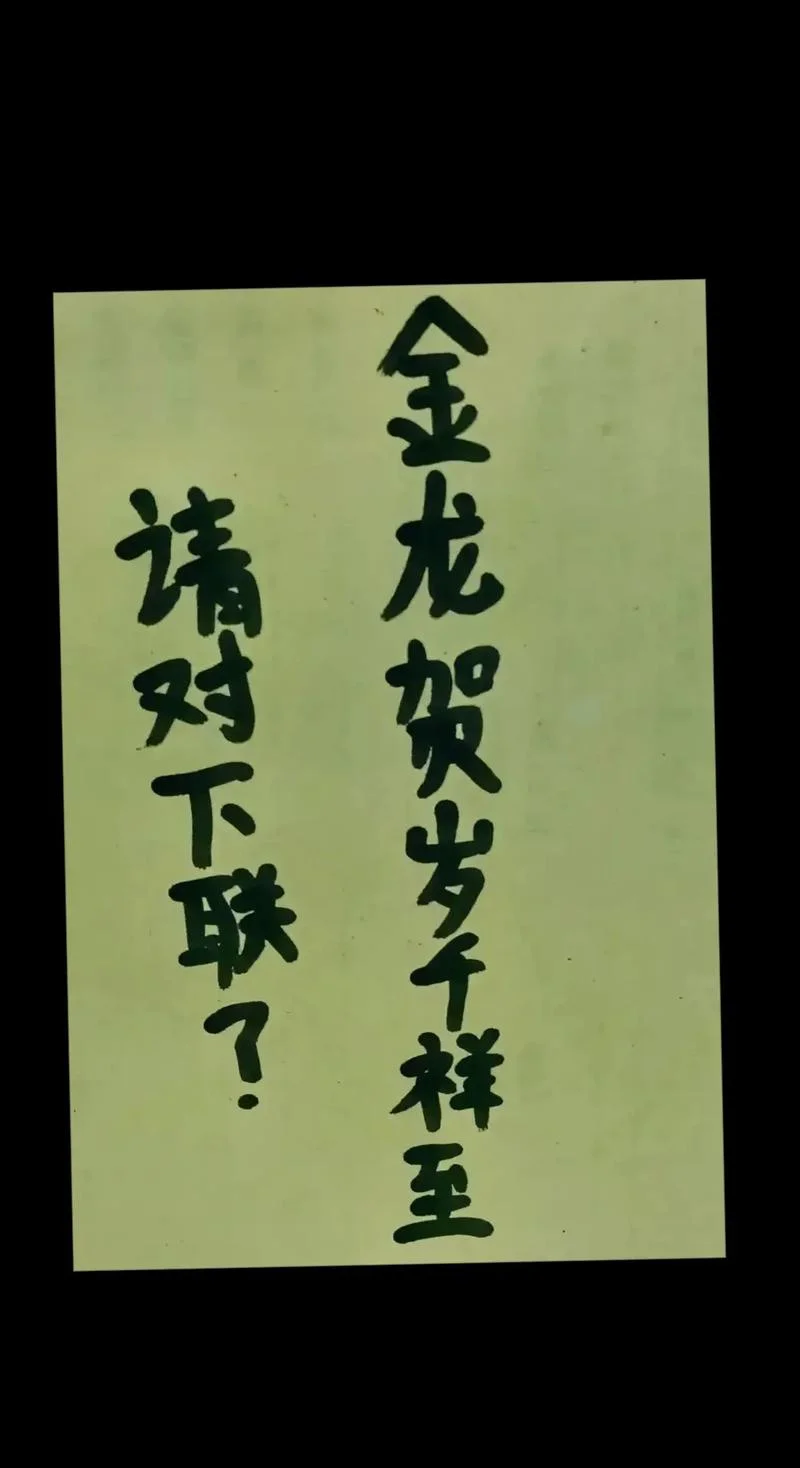 金龙贺岁千祥至
请对下联？